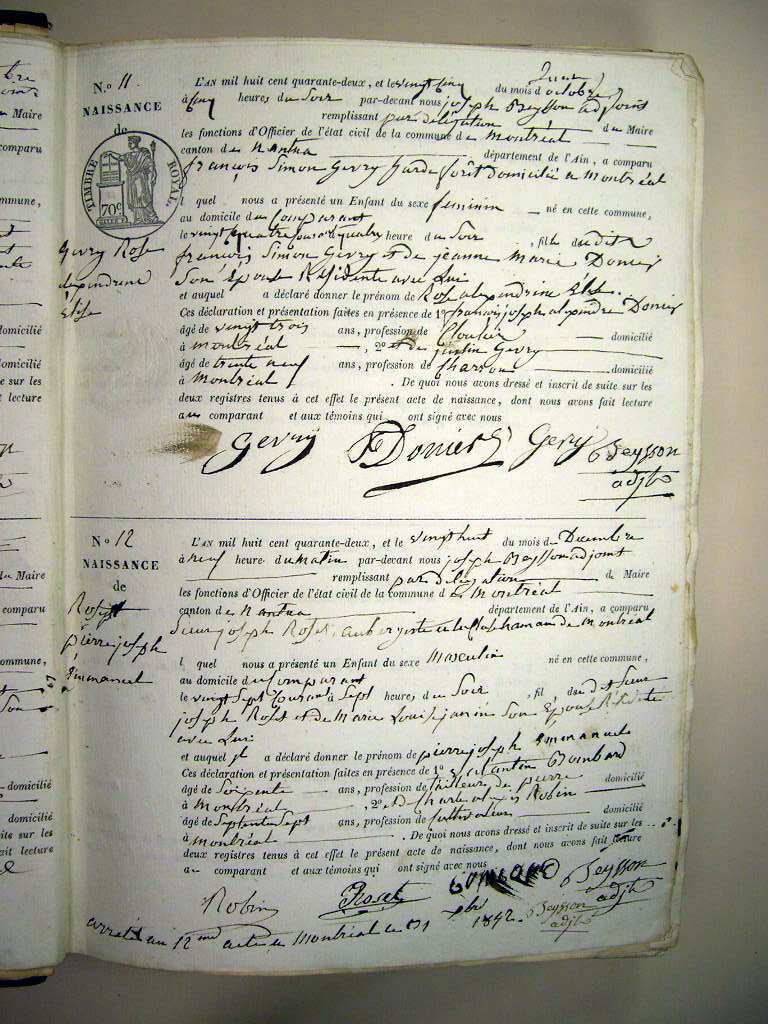 N.o 11
NAISSANCE
de
TIMBRE ROYAL
70c
Gevry Rose
alexandrine
Élise
L'AN mil huit cent quarante-deux, et le vingt cinq du mois d'octobre
à cinq heures du Soir par-devant nous joseph Beysson adjoint
remplissant par délégation du Maire
les fonctions d'Officier de l'état civil de la commune de Montréal
canton de Nantua département de l'Ain, a comparu
françois Simon Gevry Garde forêt domicilié a Montréal
l quel nous a présenté un Enfant du sexe feminin né en cette commune,
au domicile du Comparant
le vingt quatre heure du Soir , fil du dit
françois Simon Gevry et de jeanne Marie Donier
Son Épouse Résidente avec Lui
et auquel a déclaré donner le prénom de Rose alexandrine Élise.
Ces déclaration et présentation faites en présence de 1o françois joseph alexandre Donier
âgé de vingt trois ans, profession de Cloutier domicilié
à Montréal , 2o et de justin Gevry
âgé de trente neuf ans, profession de Charron domicilié
à Montréal . De quoi nous avons dressé et inscrit de suite sur les
deux registres tenus à cet effet le présent acte de naissance, dont nous avons fait lecture
au comparant et aux témoins qui ont signé avec nous
Gevry Donier Gevry Beysson
adjt
No 12
NAISSANCE
de
Roset
pierre joseph
Emmanuel
L'AN mil huit cent quarante-deux, et le vingt huit du mois de Décembre
à neuf heure du Matin par-devant nous joseph Beysson adjoint
remplissant par délégation de Maire
les fonctions d'Officier de l'état civil de la commune de Montréal
canton de Nantua département de l'Ain, a comparu
Sieur joseph Roset, aubergiste de Montréal
l quel nous a présenté un Enfant du sexe Masculin né en cette commune,
au domicile du Comparant
le vingt Sept Courant à Sept heures, du Soir , fil du dit Sieur
joseph Roset et de Marie Louise janin Son Épouse Résidente
avec Lui
et auquel il a déclaré donner le prénom de pierre joseph Emmanuel
Ces déclaration et présentation faites en présence de 1o Bombard
âgé de Soixante ans, profession de tailleur de pierre domicilié
à Montréal , 2o et Robin
âgé de Septante Sept ans, profession de Cultivateur domicilié
à Montréal . De quoi nous avons dressé et inscrit de suite sur les
deux registres tenus à cet effet le présent acte de naissance, dont nous avons fait lecture
au comparant et aux témoins qui ont signé avec nous
Robin Roset Beysson
adjt
arrêté au 12me acte a Montréal ce 31 Xbre 1842. Beysson
adjt
Maire
comparu
commune,
domicilié
domicilié
suite sur les
lecture
Maire
comparu
commune,
domicilié
domicilié
suite sur les
lecture